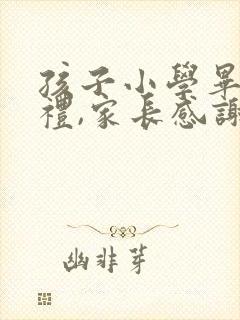 孩子小學畢
禮,家長感謝
幽非芽